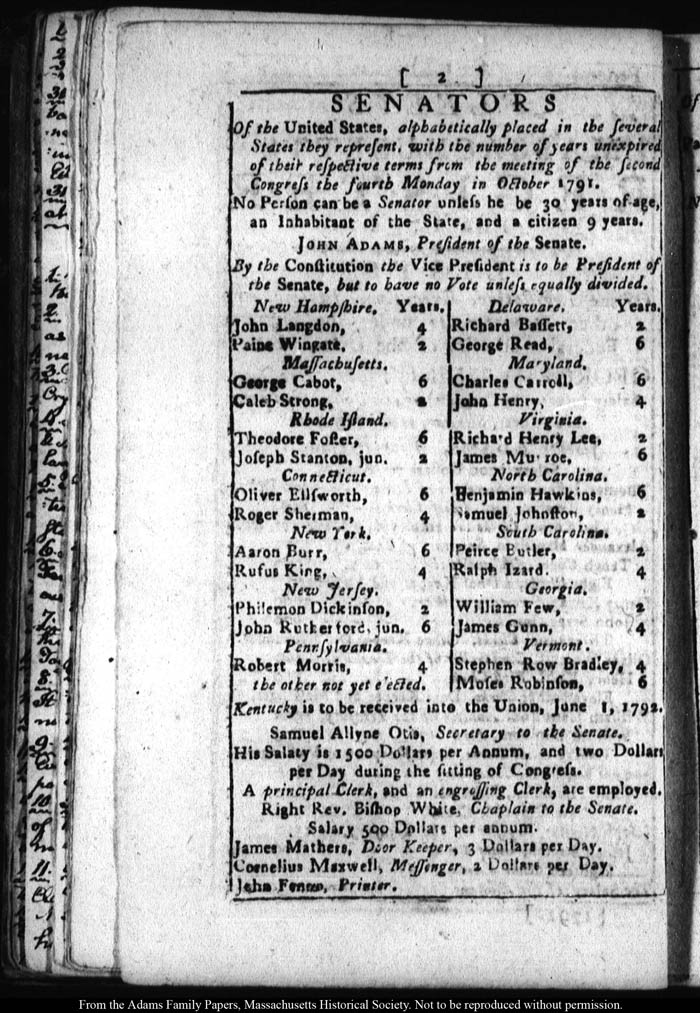 [ 2 ]
SENATORS
Of the United States, alphabetically placed in the ſeveral
States they repreſent, with the number of years unexpired
of their reſpective terms from the meeting of the ſecond
Congreſs the fourth Monday in October 1791.
No Perſon can be a Senator unleſs he be 30 years of age,
an Inhabitant of the State, and a citizen 9 years.
JOHN ADAMS, Preſident of the Senate.
By the Conſtitution the Vice Preſident is to be Preſident of
the Senate, but to have no Vote unleſs equally divided.
New Hampſhire. Years.
John Langdon, 4
Paine Wingate, 2
Maſſachuſetts.
George Cabot, 6
Caleb Strong, 2
Rhode Iſland.
Theodore Foſter, 6
Joſeph Stanton, jun. 2
Connecticut.
Oliver Ellſworth, 6
Roger Sherman, 4
New York.
Aaron Burr, 6
Rufus King, 4
New Jerſey.
Philemon Dickinſon, 2
John Rutherford, jun. 6
Pennſylvania.
Robert Morris, 4
the other not yet elected.
Delaware. Years.
Richard Baſſett, 2
George Read, 6
Maryland.
Charles Carroll, 6
John Henry, 4
Virginia.
Richard Henry Lee, 2
James Munroe, 6
North Carolina.
Benjamin Hawkins, 6
Samuel Johnſton, 2
South Carolina.
Peirce Butler, 2
Ralph Izard. 4
Georgia.
William Few, 2
James Gunn, 4
Vermont.
Stephen Row Bradley, 4
Moſes Robinſon, 6
Kentucky is to be received into the Union, June 1, 1792.
Samuel Allyne Otis, Secretary to the Senate.
His Salary is 1500 Dollars per Annum, and two Dollars
per Day during the ſitting of Congreſs.
A principal Clerk, and an engroſſing Clerk, are employed.
Right Rev. Biſhop White, Chaplain to the Senate.
Salary 500 Dollars per annum.
James Mathers, Door Keeper, 3 Dollars per Day.
Cornelius Maxwell, Meſſenger, 2 Dollars per Day.
John Fenno, Printer.
From the Adams Family Papers, Massachusetts Historical Society. Not to be reproduced without permission.